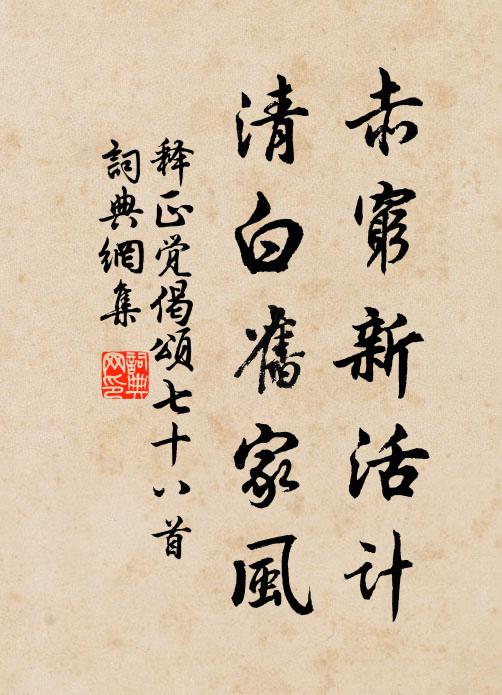 赤窮新活計
清白舊家風
释正覚偈頌七十八首
詞典網集
詞典
网印